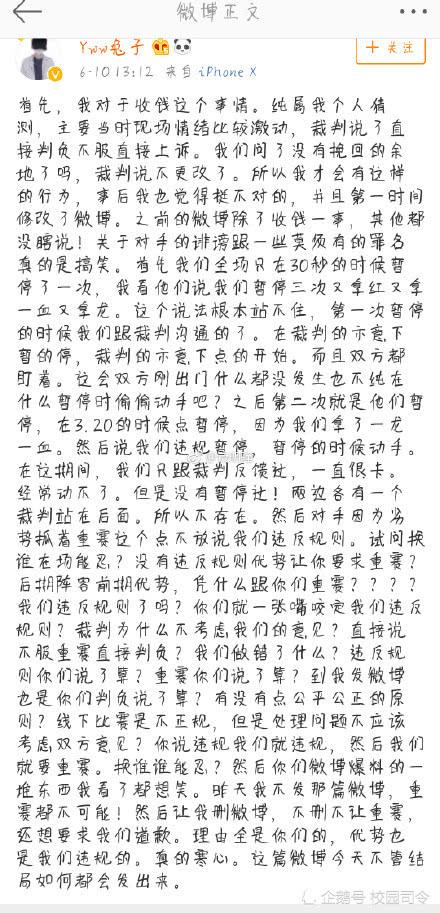 微博正文
Yww兔子
+关注
6-10 13:12 来自 iPhone X
首先，我对于收钱这个事情。纯属我个人猜
测，主要当时现场情绪比较激动，裁判说了直
接判负不服直接上诉。我们问了没有挽回的余
地了吗，裁判说不更改了。所以我才会有这样
的行为，事后我也觉得挺不对的，并且第一时间
修改了微博。之前的微博除了收钱一事，其他都
没瞎说！关于对手的诽谤跟一些莫须有的罪名
真的是搞笑。首先我们全场只在30秒的时候暂
停了一次，我看他们说我们暂停三次又拿红又拿
一血又拿龙。这个说法根本站不住，第一次暂停
的时候我们跟裁判沟通的了。在裁判的示意下
暂的停，裁判的示意下点的开始。而且双方都
盯着。这会双方刚出门什么都没发生也不纯在
什么暂停时偷偷动手吧？之后第二次就是他们暂
停，在3.20的时候点暂停，因为我们拿了一龙
一血。然后说我们违规暂停，暂停的时候动手。
在这期间，我们只跟裁判反馈过，一直很卡。
经常动不了。但是没有暂停过！两边各有一个
裁判站在后面。所以不存在。然后对手因为劣
势抓着重赛这个点不放说我们违反规则。试问换
谁在场能忍？没有违反规则优势让你要求重赛？
后期阵容前期优势，凭什么跟你们重赛？？？？
我们违反规则了吗？你们就一张嘴咬定我们违反
规则？裁判为什么不考虑我们的意见？直接说
不服重赛直接判负？我们做错了什么？违反规
则你们说了算？重赛你们说了算？到我发微博
也是你们判负说了算？有没有点公平公正的原
则？线下比赛是不正规，但是处理问题不应该
考虑双方意见？你说违规我们就违规，然后我们
就要重赛。换谁谁能忍？然后你们微博爆料的一
堆东西我看了都想笑。昨天我不发那篇微博，重
赛都不可能！然后让我删微博，不删不让重赛，
还想要求我们道歉。理由全是你们的，优势也
是我们违规的。真的寒心。这篇微博今天不管结
局如何都会发出来。
企鹅号 校园司令